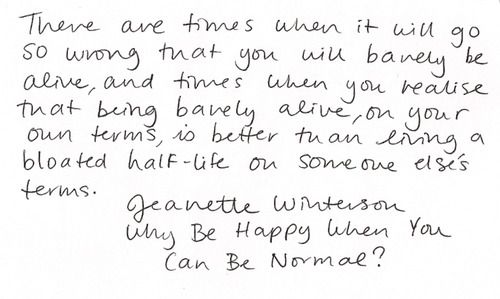 There are times when it will go
so wrong that you will barely be
alive, and times when you realise
that being barely alive, on your
own terms, is better than living a
bloated half-life on someone else's
terms.
Jeanette Winterson
Why Be Happy When You
Can Be Normal?